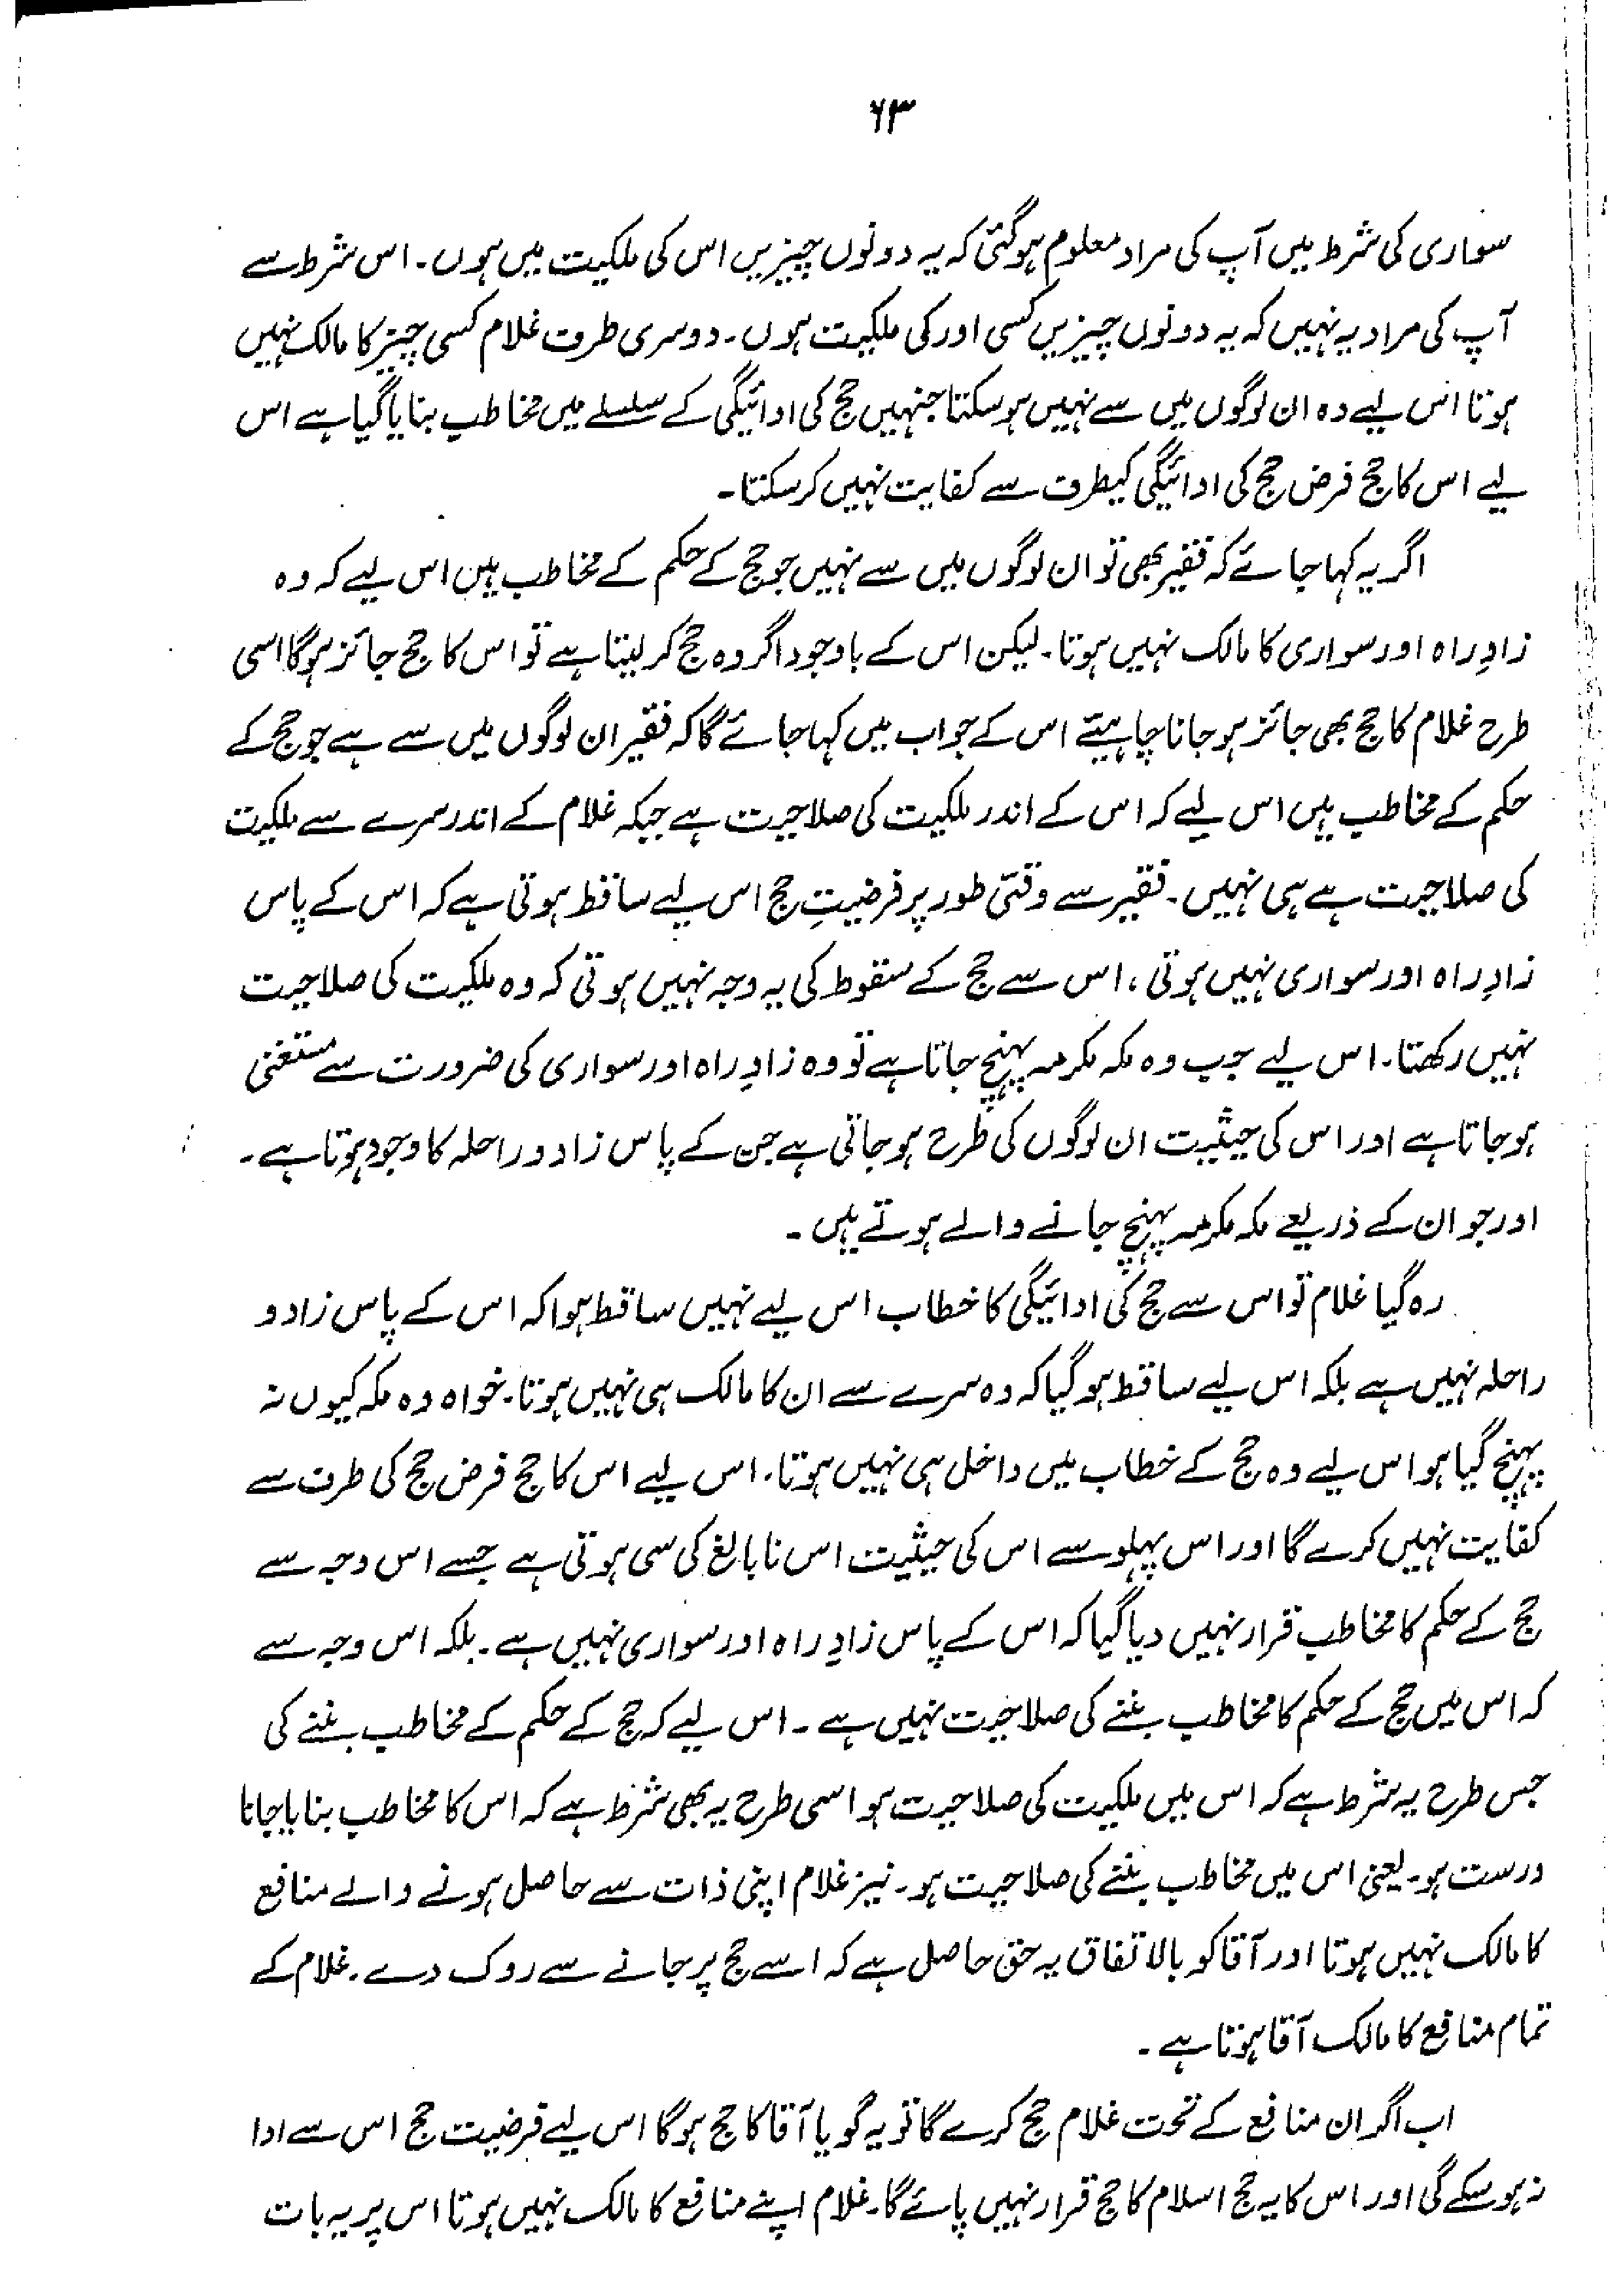 ۶۳
سواری کی شرط میں آپ کی مراد معلوم ہوگئی کہ یہ دونوں چیزیں اس کی ملکیت میں ہوں۔ اس شرط سے
آپ کی مراد یہ نہیں کہ یہ دونوں چیزیں کسی اور کی ملکیت ہوں۔ دوسری طرف غلام کسی چیز کا مالک نہیں
ہوتا اس لیے وہ ان لوگوں میں سے نہیں ہوسکتا جنہیں حج کی ادائیگی کے سلسلے میں مخاطب بنایا گیا ہے اس
لیے اس کا حج فرض حج کی ادائیگی کیطرف سے کفایت نہیں کرسکتا۔
اگر یہ کہا جائے کہ فقیر بھی تو ان لوگوں میں سے نہیں جو حج کے حکم کے مخاطب ہیں اس لیے کہ وہ
زادِ راہ اور سواری کا مالک نہیں ہوتا۔ لیکن اس کے باوجود اگر وہ حج کرلیتا ہے تو اس کا حج جائز ہوگا اسی
طرح غلام کا حج بھی جائز ہوجانا چاہیئے اس کے جواب میں کہا جائے گا کہ فقیر ان لوگوں میں سے ہے جو حج کے
حکم کے مخاطب ہیں اس لیے کہ اس کے اندر ملکیت کی صلاحیت ہے جبکہ غلام کے اندر سرے سے ملکیت
کی صلاحیت ہے ہی نہیں۔ فقیر سے وقتی طور پر فرضیتِ حج اس لیے ساقط ہوتی ہے کہ اس کے پاس
زادِ راہ اور سواری نہیں ہوتی، اس سے حج کے سقوط کی یہ وجہ نہیں ہوتی کہ وہ ملکیت کی صلاحیت
نہیں رکھتا۔ اس لیے جب وہ مکہ مکرمہ پہنچ جاتا ہے تو وہ زادِ راہ اور سواری کی ضرورت سے مستغنی
ہوجاتا ہے اور اس کی حیثیت ان لوگوں کی طرح ہوجاتی ہے جن کے پاس زاد و راحلہ کا وجود ہوتا ہے۔
اور جو ان کے ذریعے مکہ مکرمہ پہنچ جانے والے ہوتے ہیں۔
رہ گیا غلام تو اس سے حج کی ادائیگی کا خطاب اس لیے نہیں ساقط ہوا کہ اس کے پاس زاد و
راحلہ نہیں ہے بلکہ اس لیے ساقط ہوگیا کہ وہ سرے سے ان کا مالک ہی نہیں ہوتا۔ خواہ وہ مکہ کیوں نہ
پہنچ گیا ہو اس لیے وہ حج کے خطاب میں داخل ہی نہیں ہوتا۔ اس لیے اس کا حج فرض حج کی طرف سے
کفایت نہیں کرے گا اور اس پہلو سے اس کی حیثیت اس نابالغ کی سی ہوتی ہے جسے اس وجہ سے
حج کے حکم کا مخاطب قرار نہیں دیا گیا کہ اس کے پاس زادِ راہ اور سواری نہیں ہے۔ بلکہ اس وجہ سے
کہ اس میں حج کے حکم کا مخاطب بننے کی صلاحیت نہیں ہے۔ اس لیے کہ حج کے حکم کے مخاطب بننے کی
جس طرح یہ شرط ہے کہ اس میں ملکیت کی صلاحیت ہو اسی طرح یہ بھی شرط ہے کہ اس کا مخاطب بنایا جانا
درست ہو۔ یعنی اس میں مخاطب بننے کی صلاحیت ہو۔ نیز غلام اپنی ذات سے حاصل ہونے والے منافع
کا مالک نہیں ہوتا اور آقا کو بالاتفاق یہ حق حاصل ہے کہ اسے حج پر جانے سے روک دے۔ غلام کے
تمام منافع کا مالک آقا ہوتا ہے۔
اب اگر ان منافع کے تحت غلام حج کرے گا تو یہ گویا آقا کا حج ہوگا اس لیے فرضیت حج اس سے ادا
نہ ہوسکے گی اور اس کا یہ حج اسلام کا حج قرار نہیں پائے گا۔ غلام اپنے منافع کا مالک نہیں ہوتا اس پر یہ بات